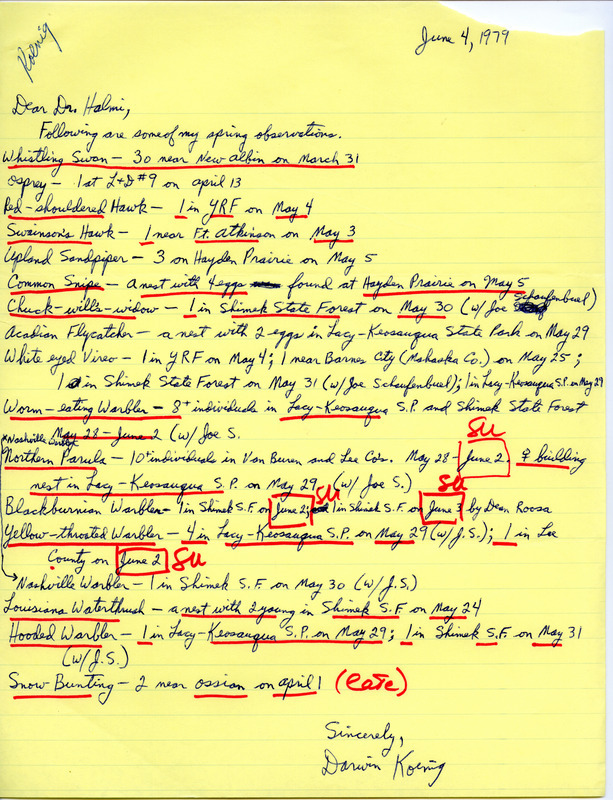 Koenig
June 4, 1979
Dear Dr. Halmi,
Following are some of my spring observations.
Whistling Swan - 30 near New Albin on March 31
Osprey - 1 at L+D #9 on april 13
Red-shouldered Hawk - 1 in YRF on May 4
Swainson's Hawk - 1 near Ft. Atkinson on May 3
Upland Sandpiper - 3 on Hayden Prairie on May 5
Common Snipe - a nest with 4 eggs found at Hayden Prairie on May 5
Chuck-will's-widow - 1 in Shimek State Forest on May 30 (w/ Joe Schaufenbuel)
Acadian Flycatcher - a nest with 2 eggs in Lacy-Keosauqua State Park on May 29
White eyed Vireo - 1 in YRF on May 4; 1 near Barnes City (Mahaska Co.) on May 25;
1 in Shimek State Forest on May 31 (w/ Joe Schaufenbuel); 1 in Lacy-Keosauqua S.P. on May 29
Worm-eating Warbler - 8+ individuals in Lacy-Keosauqua S.P. and Shimek State Forest
May 28 - June 2 (w/ Joe S.
*Nashville
SU
Northern Parula - 10+ individuals in Van Buren and Lee Co's. May 28 - June 2. ♀ building
nest in Lacy-Keosauqua S.P. on May 29 (w/ Joe S.)
SU SU
Blackburnian Warbler - 1 in Shimek S.F. on June 2; 1 in Shimek S.F. on June 3 by Dean Roosa
Yellow-throated Warbler - 4 in Lacy-Keosauqua S.P. on May 29 (w/ J.S.); 1 in Lee
County on June 2 SU
Nashville Warbler - 1 in Shimek S.F. on May 30 (w/ J.S.)
Louisiana Waterthrush - a nest with 2 young in Shimek S.F. on May 24
Hooded Warbler - 1 in Lacy-Keosauqua S.P. on May 29; 1 in Shimek S.F. on May 31
(w/ J.S.)
Snow Bunting - 2 near Ossian on april 1 (late)
Sincerely,
Darwin Koenig